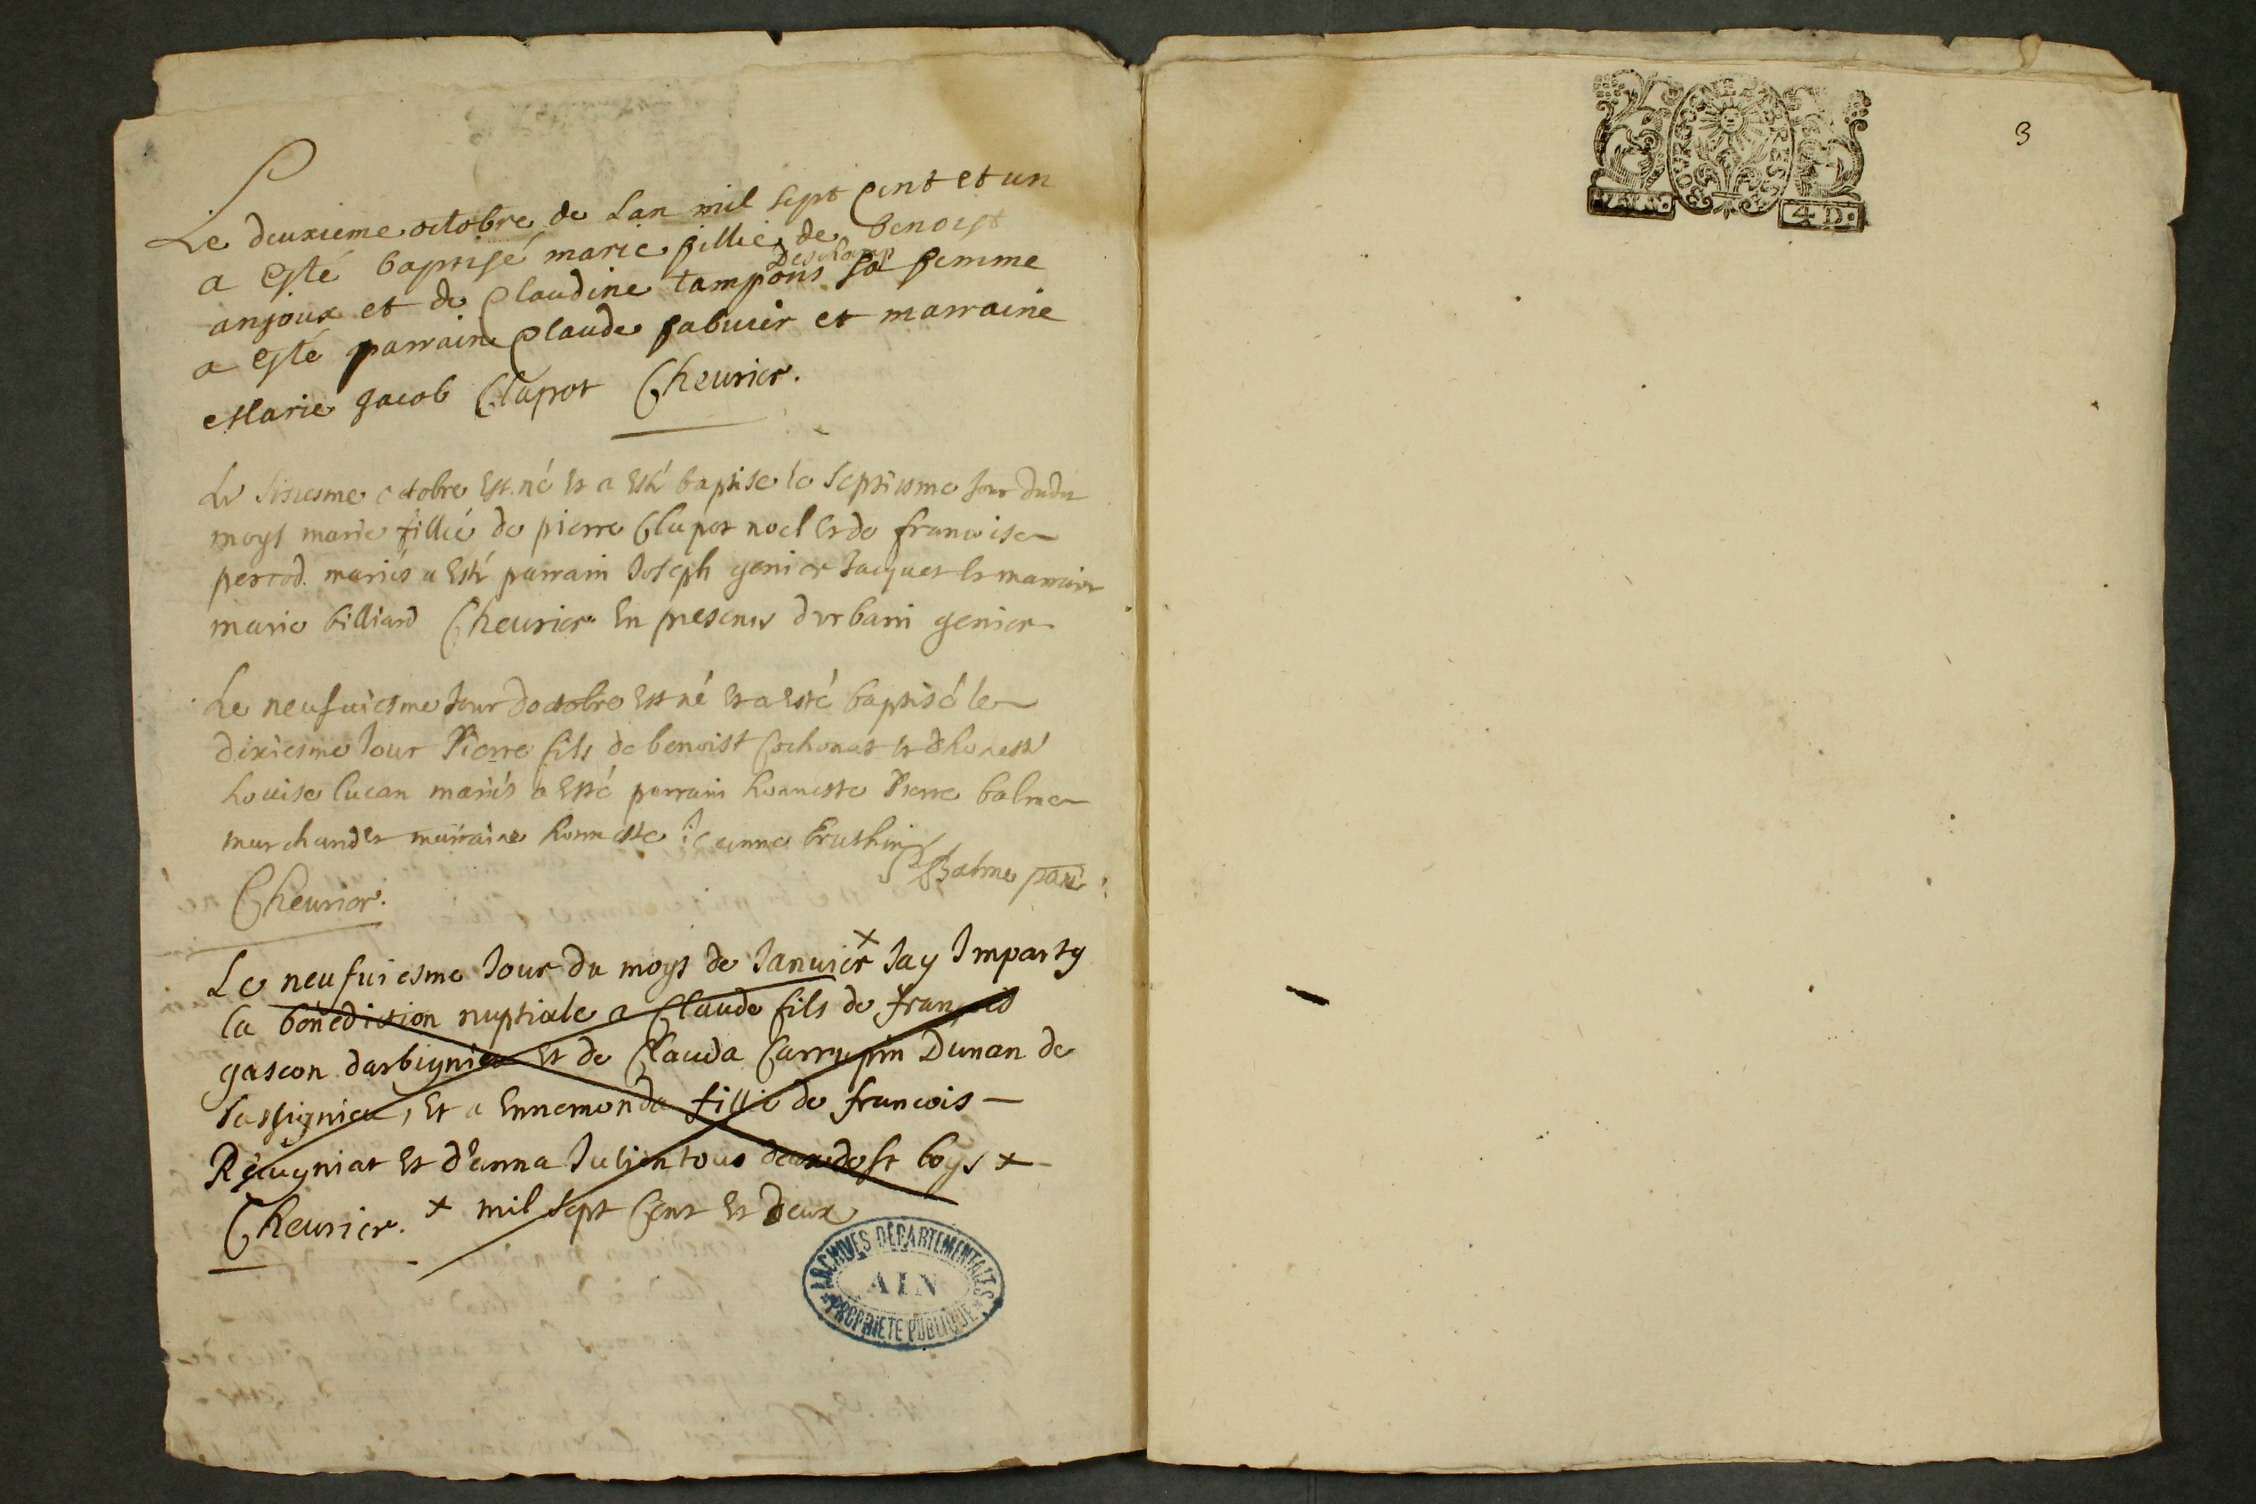 Le deuxieme octobre de Lan mil sept Cent et un
a esté baptisé marie fillie de benoist
Deschamp
anjoux et de Claudine tampons sa femme
a esté parrain Claude faburier et marraine
Marie Jacob Clapot Cheurier.
Le sixiesme octobre Est né Et a Esté baptise le septiesme Jour dudit
moys marie fillie de pierre Clapot noel Et de francoise
mariés a Esté parrain Joseph genier Jacques Et marraine
marie billiard Cheurier En presence d'vrbain genier
Le neufuiesme Jour doctobre Est né Et a Esté baptisé le
dixiesme Jour Pierre fils de benoist Cochonat Et dhoneste
Louise lucan mariés a Esté parrain honneste Pierre balme
marchand Et marraine honneste Jeanne
Balme
Cheurier.
Le neufuiesme Jour du moys de Januier x Jay Imparty
la benediction nuptiale a Claude fils de françois
gascon darbignieu Et de Clauda Carrupin Dunan de
Et a Ennemonda fillie de francois
Réaugniat Et d'anna Julien tous deux dost boys x
Cheurier. x mil sept Cent Et deux
ARCHIVES DÉPARTEMENTALES
AIN
PROPRIÉTÉ PUBLIQUE
3
4 D.